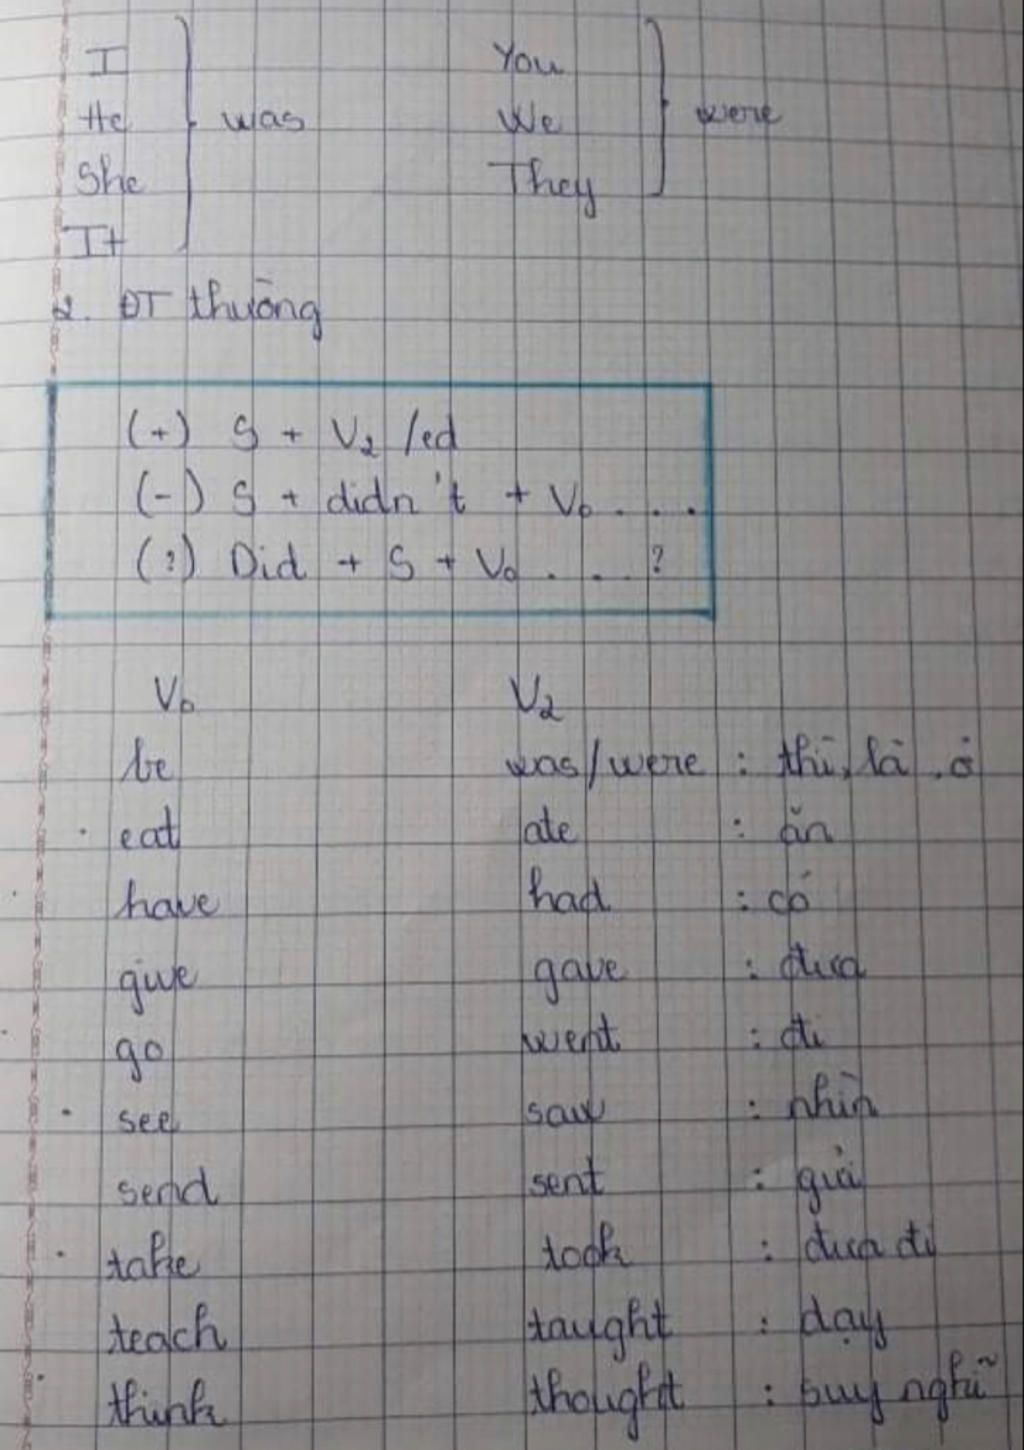 I You
He was We were
She They
It
2. ĐT thường
(+) S + V2 /ed
(-) S + didn't + Vo . . .
(?) Did + S + Vo . . . ?
Vo V2
be was/were : thì, là, ở
eat ate : ăn
have had : có
give gave : đưa
go went : đi
see saw : nhìn
send sent : gửi
take took : đưa đi
teach taught : dạy
think thought : suy nghĩ